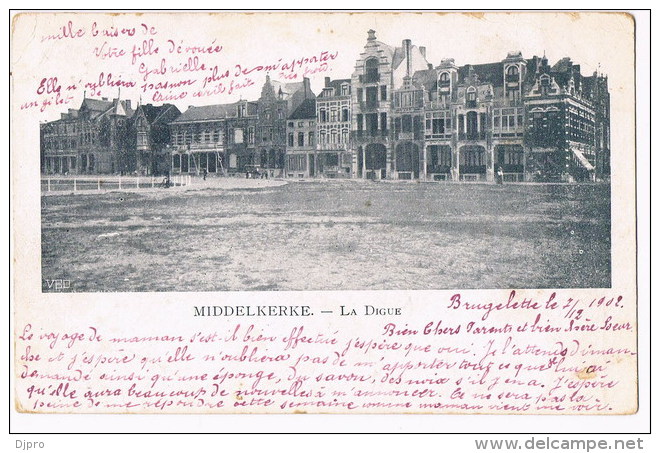 mille baiser de
Votre fille dévouée
Gabrielle.
Elle n'oubliera pas non plus de m'apporter
un gilet de laine car il fait très froid
VED
MIDDELKERKE. — LA DIGUE
Brugelette le 2/12 1902
Bien Chers Parents et bien chère Sœur
Le voyage de maman s'est-il bien effectué j'espère que oui. Je l'attends diman-
che et j'espère qu'elle n'oubliera pas de m'apporter tout ce que je lui ai
demandé ainsi qu'une éponge, du savon, des noix s'il y en a. J'espère
qu'elle aura beaucoup de nouvelles à m'annoncer. Ce ne sera pas la
peine de me répondre cette semaine comme maman vient me voir.
Djpro
www.delcampe.net